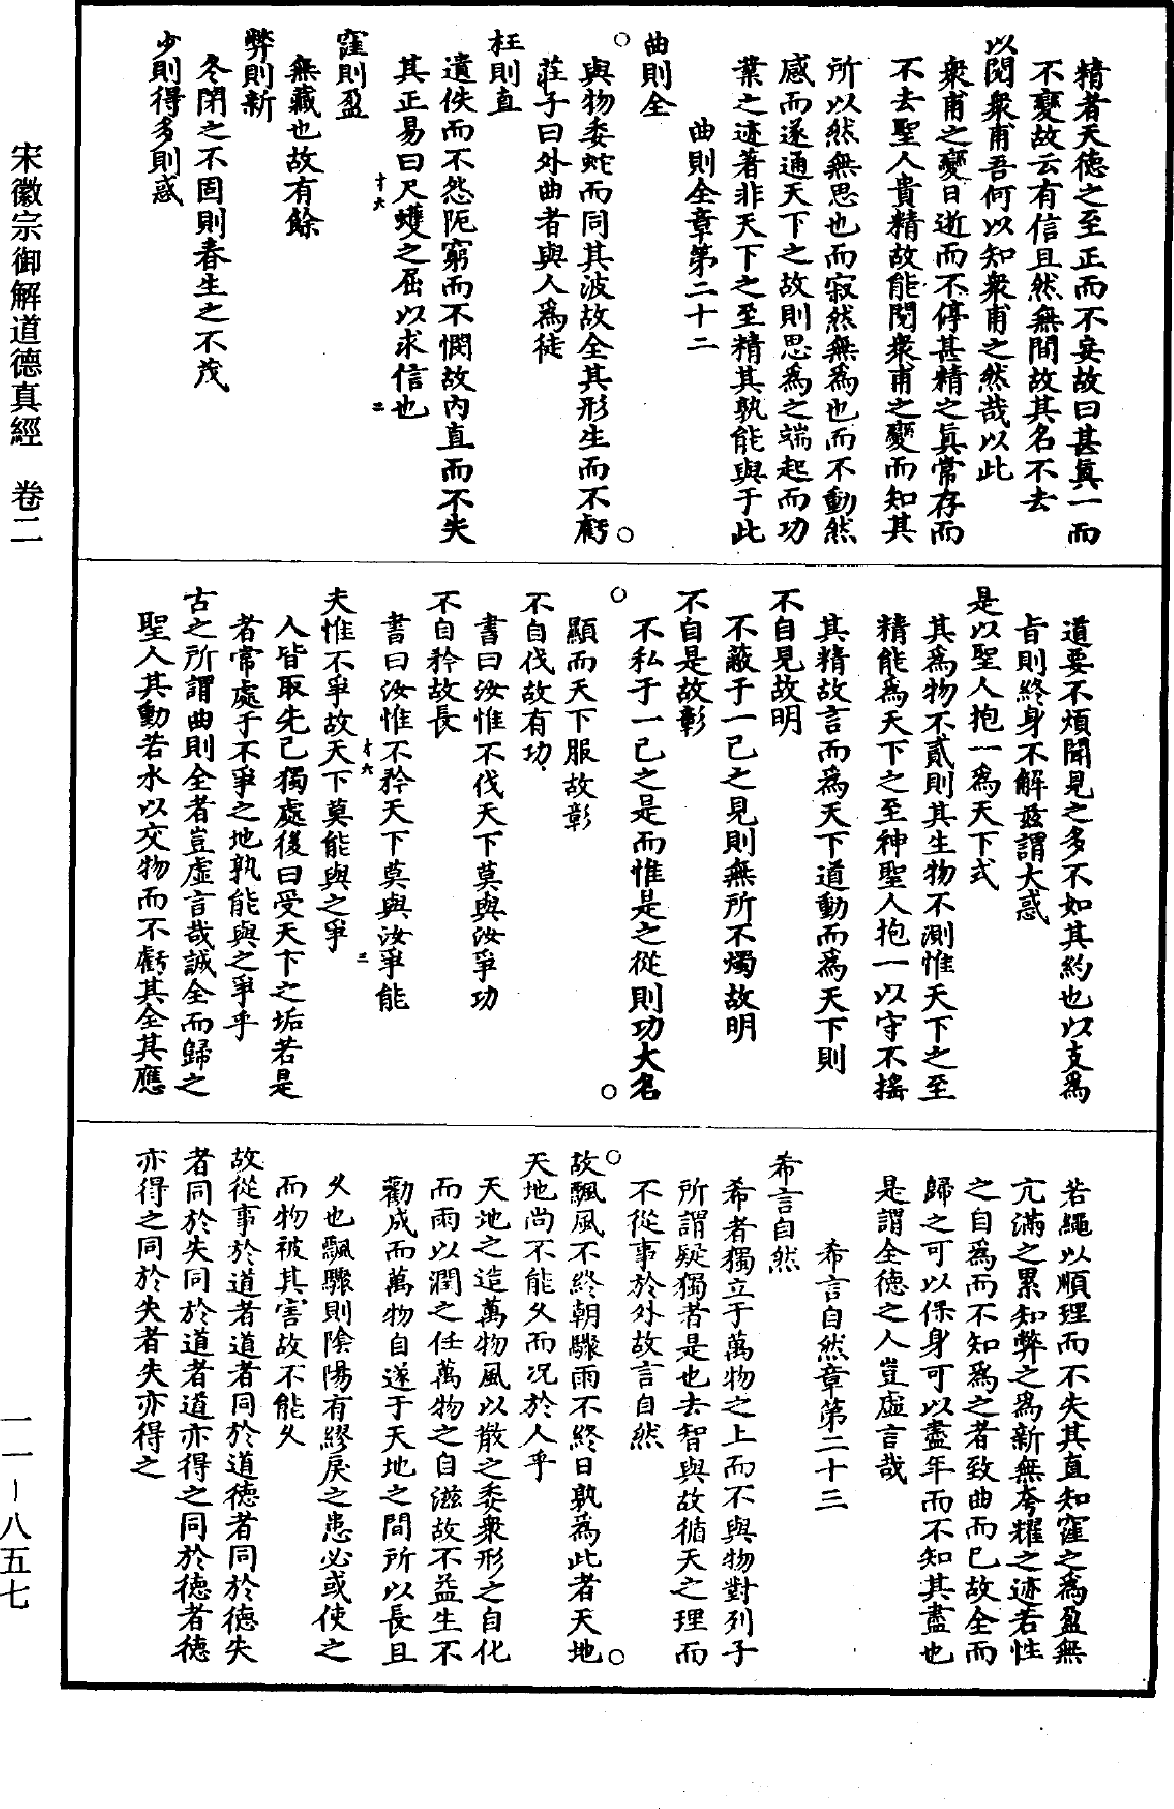 精者天德之至正而不妄故曰甚眞一而
不變故云有信且然無間故其名不去
以閱衆甫吾何以知衆甫之然哉以此
衆甫之變日逝而不停甚精之眞常存而
不去聖人貴精故能閱衆甫之變而知其
所以然無思也而寂然無爲也而不動然
感而遂通天下之故則思爲之端起而功
業之迹著非天下之至精其孰能與于此
曲則全章第二十二
曲則全
與物委蛇而同其波故全其形生而不虧
莊子曰外曲者與人爲徒
枉則直
遺佚而不怨阨窮而不憫故內直而不失
其正易曰尺蠖之屈以求信也
十六 二
窪則盈
無藏也故有餘
弊則新
冬閉之不固則春生之不茂
少則得多則惑
道要不煩聞見之多不如其約也以支爲
旨則終身不解兹謂大惑
是以聖人抱一爲天下式
其爲物不貳則其生物不測惟天下之至
精能爲天下之至神聖人抱一以守不搖
其精故言而爲天下道動而爲天下則
不自見故明
不蔽于一己之見則無所不燭故明
不自是故彰
不私于一己之是而惟是之從則功大名
顯而天下服故彰
不自伐故有功
書曰汝惟不伐天下莫與汝爭功
不自矜故長
書曰汝惟不矜天下莫與汝爭能
十六 三
夫惟不爭故天下莫能與之爭
人皆取先己獨處後曰受天下之垢若是
者常處于不爭之地孰能與之爭乎
古之所謂曲則全者豈虛言哉誠全而歸之
聖人其動若水以交物而不虧其全其應
若繩以順理而不失其直知窪之爲盈無
亢滿之累知弊之爲新無夸耀之迹若性
之自爲而不知爲之者致曲而已故全而
歸之可以保身可以盡年而不知其盡也
是謂全德之人豈虛言哉
希言自然章第二十三
希言自然
希者獨立于萬物之上而不與物對列子
所謂疑獨者是也去智與故循天之理而
不從事於外故言自然
故飄風不終朝驟雨不終日孰爲此者天地
天地尚不能久而況於人乎
天地之造萬物風以散之委衆形之自化
而雨以潤之任萬物之自滋故不益生不
勸成而萬物自遂于天地之間所以長且
久也飄驟則陰陽有繆戾之患必或使之
而物被其害故不能久
故從事於道者道者同於道德者同於德失
者同於失同於道者道亦得之同於德者德
亦得之同於失者失亦得之
宋徽宗御解道德真經 卷二
一一－八五七